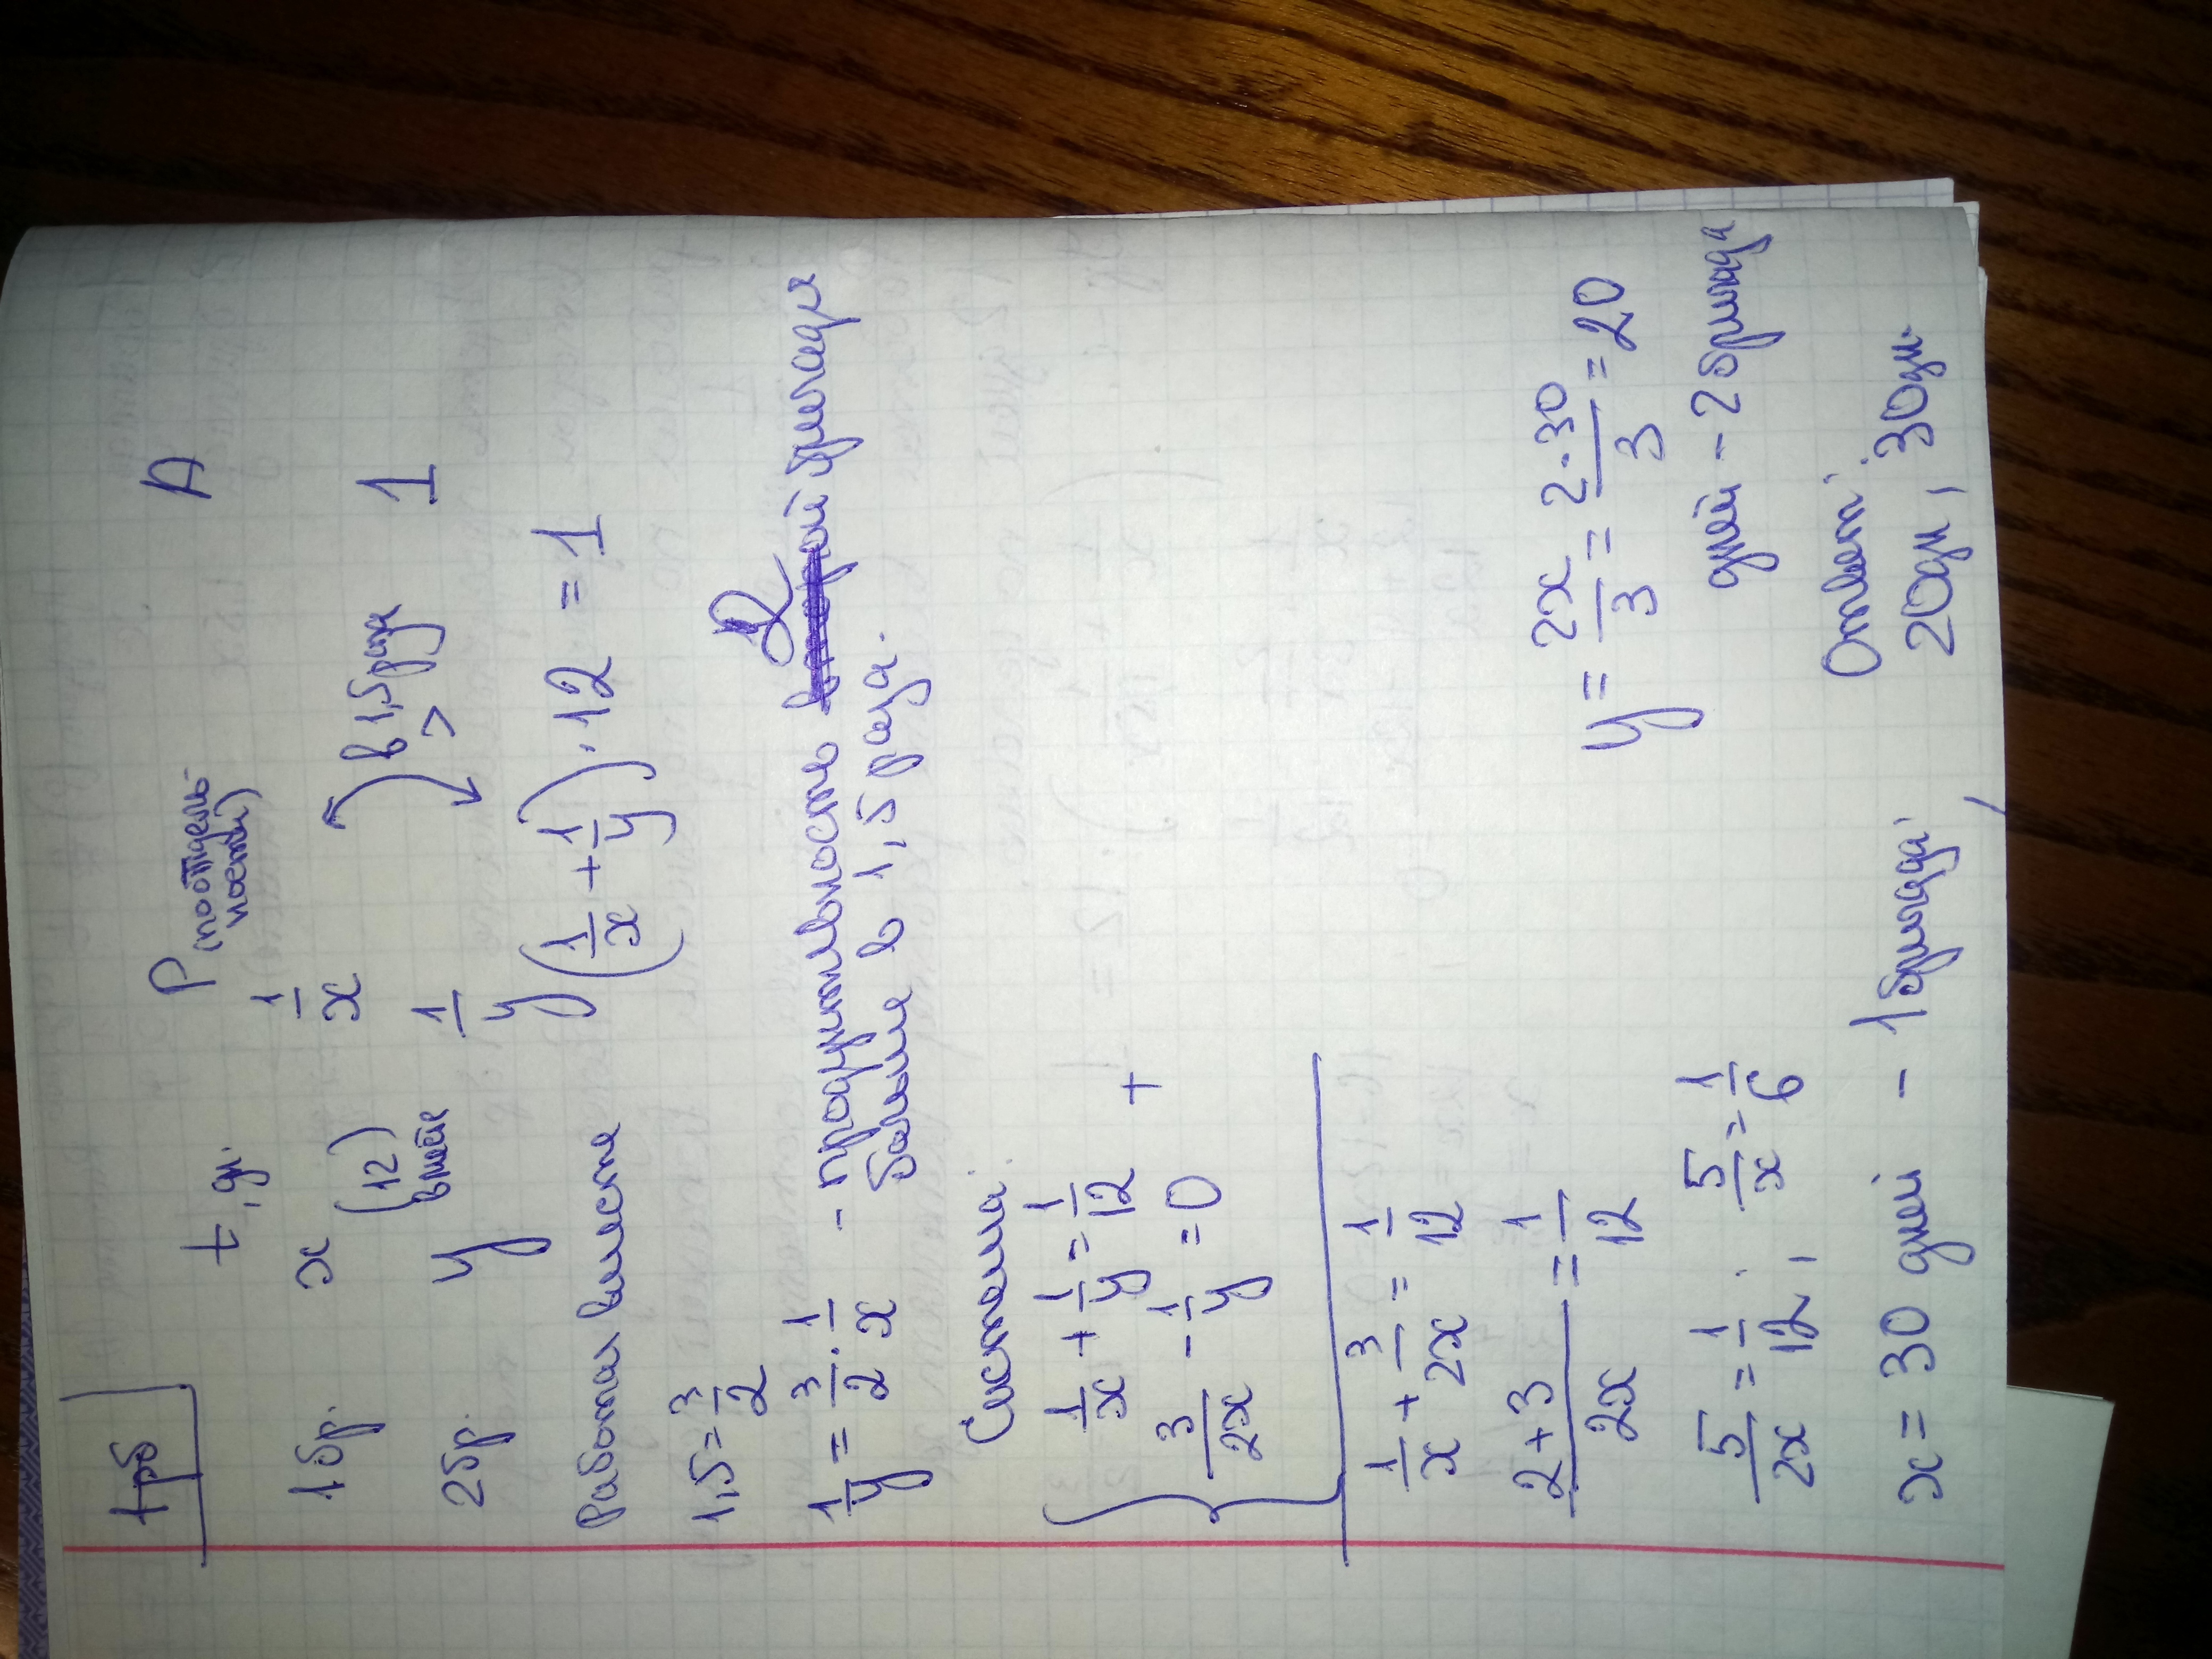 t, дн. P (по отдельности) A
1 бр. x 1/x
(12) вместе в 1,5 раза > 1
2 бр. y 1/y
Работая вместе (1/x + 1/y) · 12 = 1
1,5 = 3/2
1/y = 3/2 · 1/x - продуктивность 2й бригады
больше в 1,5 раза.
Система:
{ 1/x + 1/y = 1/12 +
3/2x - 1/y = 0
1/x + 3/2x = 1/12
2+3/2x = 1/12
5/2x = 1/12; 5/x = 1/6
x = 30 дней - 1 бригада;
y = 2x/3 = 2·30/3 = 20
дней - 2 бригада
Ответ:
20дн, 30дн.